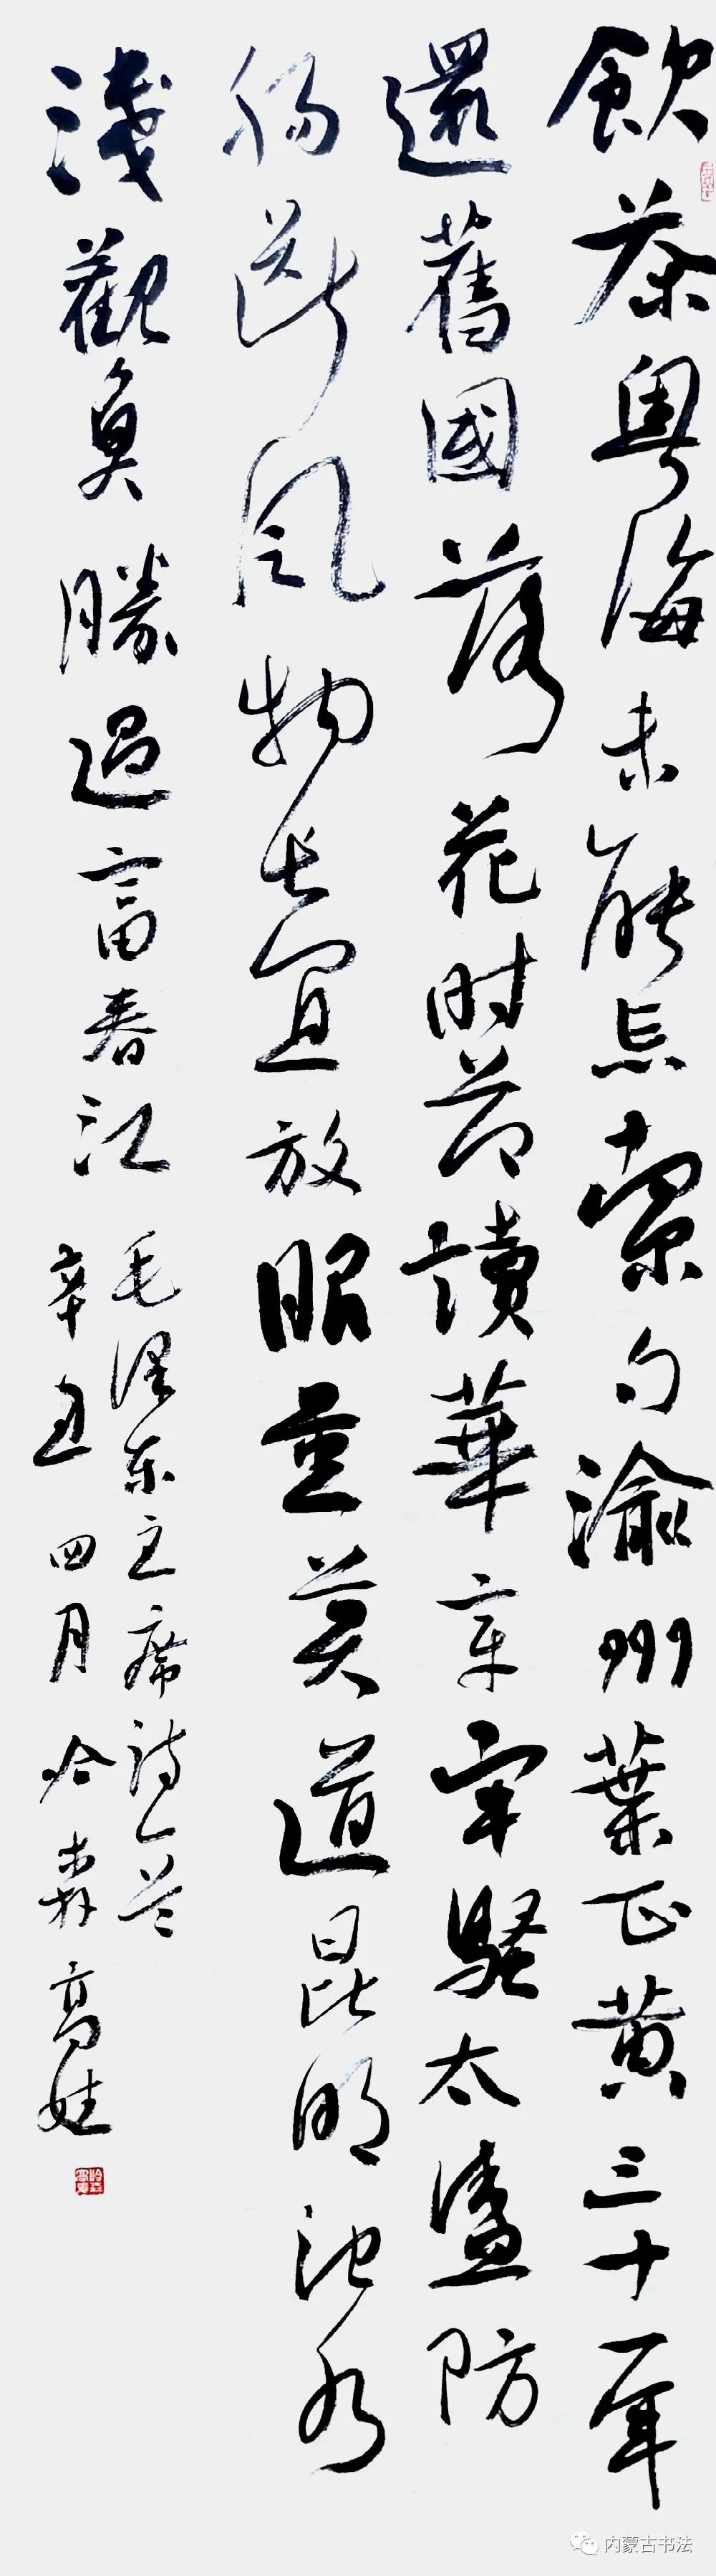 飲茶粵海未能忘索句渝州葉正黃三十一年
還舊國落花时節讀華章牢騷太盛防
腸斷風物長宜放眼量莫道昆明池水
淺觀魚勝過富春江
毛澤东主席詩一首
辛丑四月哈森高娃
内蒙古书法